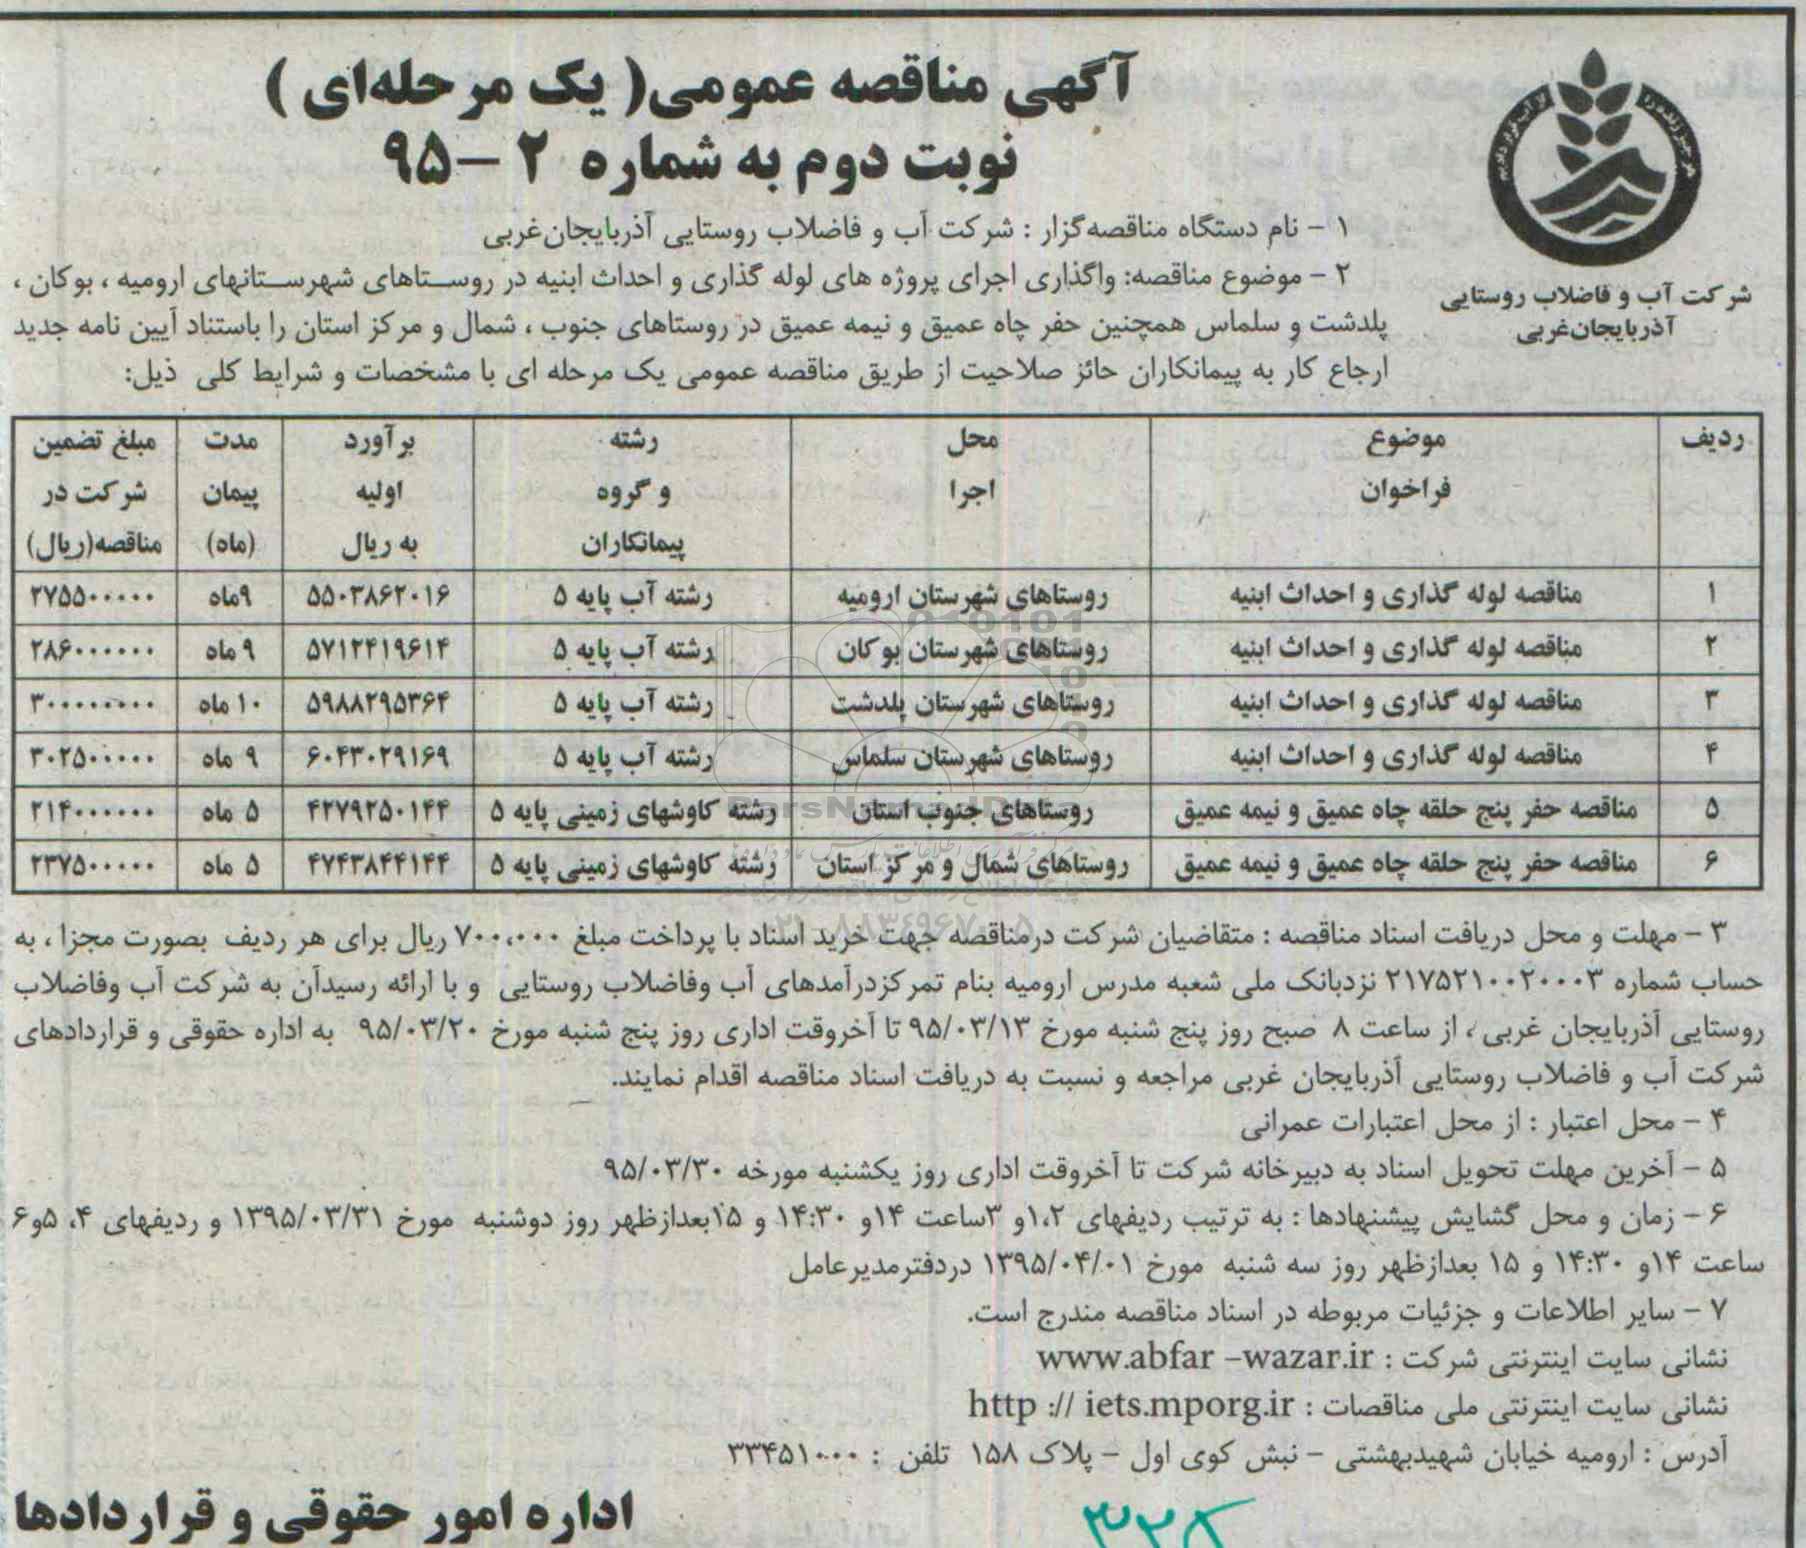 آگهی مناقصه عمومی( یک مرحله‌ای )
نوبت دوم به شماره ۲ – ۹۵
شرکت آب و فاضلاب روستایی
آذربایجان‌غربی
۱ – نام دستگاه مناقصه‌گزار : شرکت آب و فاضلاب روستایی آذربایجان‌غربی
۲ – موضوع مناقصه: واگذاری اجرای پروژه های لوله گذاری و احداث ابنیه در روستاهای شهرستانهای ارومیه ، بوکان ،
پلدشت و سلماس همچنین حفر چاه عمیق و نیمه عمیق در روستاهای جنوب ، شمال و مرکز استان را باستناد آیین نامه جدید
ارجاع کار به پیمانکاران حائز صلاحیت از طریق مناقصه عمومی یک مرحله ای با مشخصات و شرایط کلی ذیل:
ردیف موضوع فراخوان محل اجرا رشته و گروه پیمانکاران برآورد اولیه به ریال مدت پیمان (ماه) مبلغ تضمین شرکت در مناقصه(ریال)
۱ مناقصه لوله گذاری و احداث ابنیه روستاهای شهرستان ارومیه رشته آب پایه ۵ ۵۵۰۳۸۶۲۰۱۶ ۹ماه ۲۷۵۵۰۰۰۰۰
۲ مناقصه لوله گذاری و احداث ابنیه روستاهای شهرستان بوکان رشته آب پایه ۵ ۵۷۱۲۴۱۹۶۱۴ ۹ ماه ۲۸۶۰۰۰۰۰۰
۳ مناقصه لوله گذاری و احداث ابنیه روستاهای شهرستان پلدشت رشته آب پایه ۵ ۵۹۸۸۲۹۵۳۶۴ ۱۰ ماه ۳۰۰۰۰۰۰۰۰
۴ مناقصه لوله گذاری و احداث ابنیه روستاهای شهرستان سلماس رشته آب پایه ۵ ۶۰۴۳۰۲۹۱۶۹ ۹ ماه ۳۰۲۵۰۰۰۰۰
۵ مناقصه حفر پنج حلقه چاه عمیق و نیمه عمیق روستاهای جنوب استان رشته کاوشهای زمینی پایه ۵ ۴۲۷۹۲۵۰۱۴۴ ۵ ماه ۲۱۴۰۰۰۰۰۰
۶ مناقصه حفر پنج حلقه چاه عمیق و نیمه عمیق روستاهای شمال و مرکز استان رشته کاوشهای زمینی پایه ۵ ۴۷۴۳۸۴۴۱۴۴ ۵ ماه ۲۳۷۵۰۰۰۰۰
۳ – مهلت و محل دریافت اسناد مناقصه : متقاضیان شرکت درمناقصه جهت خرید اسناد با پرداخت مبلغ ۷۰۰،۰۰۰ ریال برای هر ردیف بصورت مجزا ، به
حساب شماره ۲۱۷۵۲۱۰۰۲۰۰۰۳ نزدبانک ملی شعبه مدرس ارومیه بنام تمرکزدرآمدهای آب وفاضلاب روستایی و با ارائه رسیدآن به شرکت آب وفاضلاب
روستایی آذربایجان غربی ، از ساعت ۸ صبح روز پنج شنبه مورخ ۹۵/۰۳/۱۳ تا آخروقت اداری روز پنج شنبه مورخ ۹۵/۰۳/۲۰ به اداره حقوقی و قراردادهای
شرکت آب و فاضلاب روستایی آذربایجان غربی مراجعه و نسبت به دریافت اسناد مناقصه اقدام نمایند.
۴ – محل اعتبار : از محل اعتبارات عمرانی
۵ – آخرین مهلت تحویل اسناد به دبیرخانه شرکت تا آخروقت اداری روز یکشنبه مورخه ۹۵/۰۳/۳۰
۶ – زمان و محل گشایش پیشنهادها : به ترتیب ردیفهای ۱،۲و ۳ساعت ۱۴و ۱۴:۳۰ و ۱۵بعدازظهر روز دوشنبه مورخ ۱۳۹۵/۰۳/۳۱ و ردیفهای ۴، ۵و۶
ساعت ۱۴و ۱۴:۳۰ و ۱۵ بعدازظهر روز سه شنبه مورخ ۱۳۹۵/۰۴/۰۱ دردفترمدیرعامل
۷ – سایر اطلاعات و جزئیات مربوطه در اسناد مناقصه مندرج است.
نشانی سایت اینترنتی شرکت : www.abfar -wazar.ir
نشانی سایت اینترنتی ملی مناقصات : http :// iets.mporg.ir
آدرس : ارومیه خیابان شهیدبهشتی – نبش کوی اول – پلاک ۱۵۸ تلفن : ۳۳۴۵۱۰۰۰
اداره امور حقوقی و قراردادها